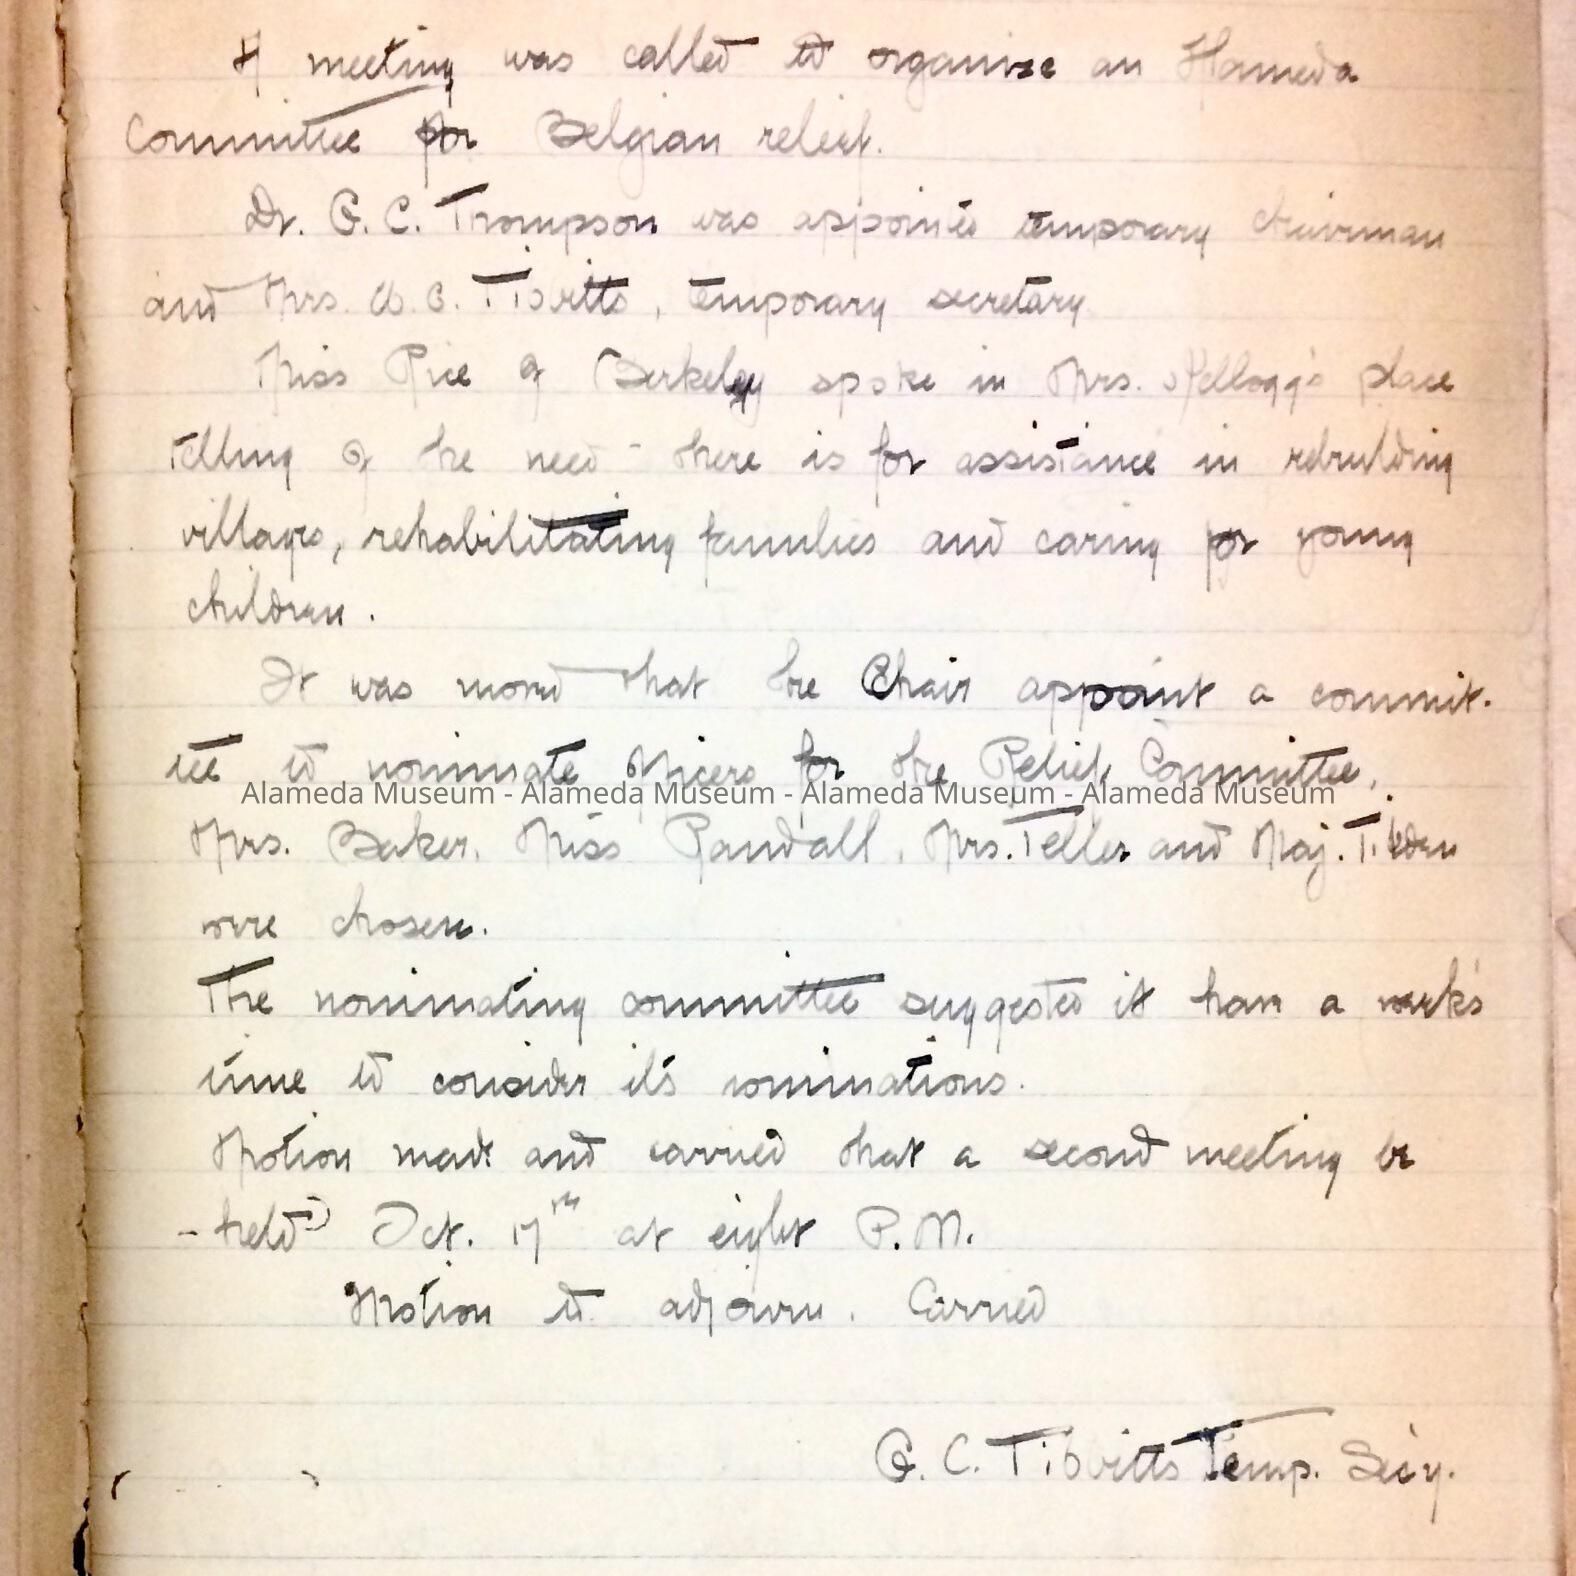 A meeting was called to organize an Alameda
Committee for Belgian relief.
Dr. G. C. Thompson was appointed temporary chairman
and Mrs. C. Tibbitts, temporary secretary
Miss Rice of Berkeley spoke in Mrs. Kellogg's place
telling of the need there is for assistance in rebuilding
villages, rehabilitating families and caring for young
children.
It was moved that the Chair appoint a commit-
tee to nominate officers for the Relief Committee.
Alameda Museum - Alameda Museum - Alameda Museum - Alameda Museum
Mrs. Baker, Miss Randall, Mrs. Teller and Maj. Tilden
were chosen.
The nominating committee suggested it have a week's
time to consider it's nominations.
Motion made and carried that a second meeting be
held Oct. 17th at eight P.M.
Motion to adjourn. Carried
G. C. Tibbitts Temp. Sec'y.